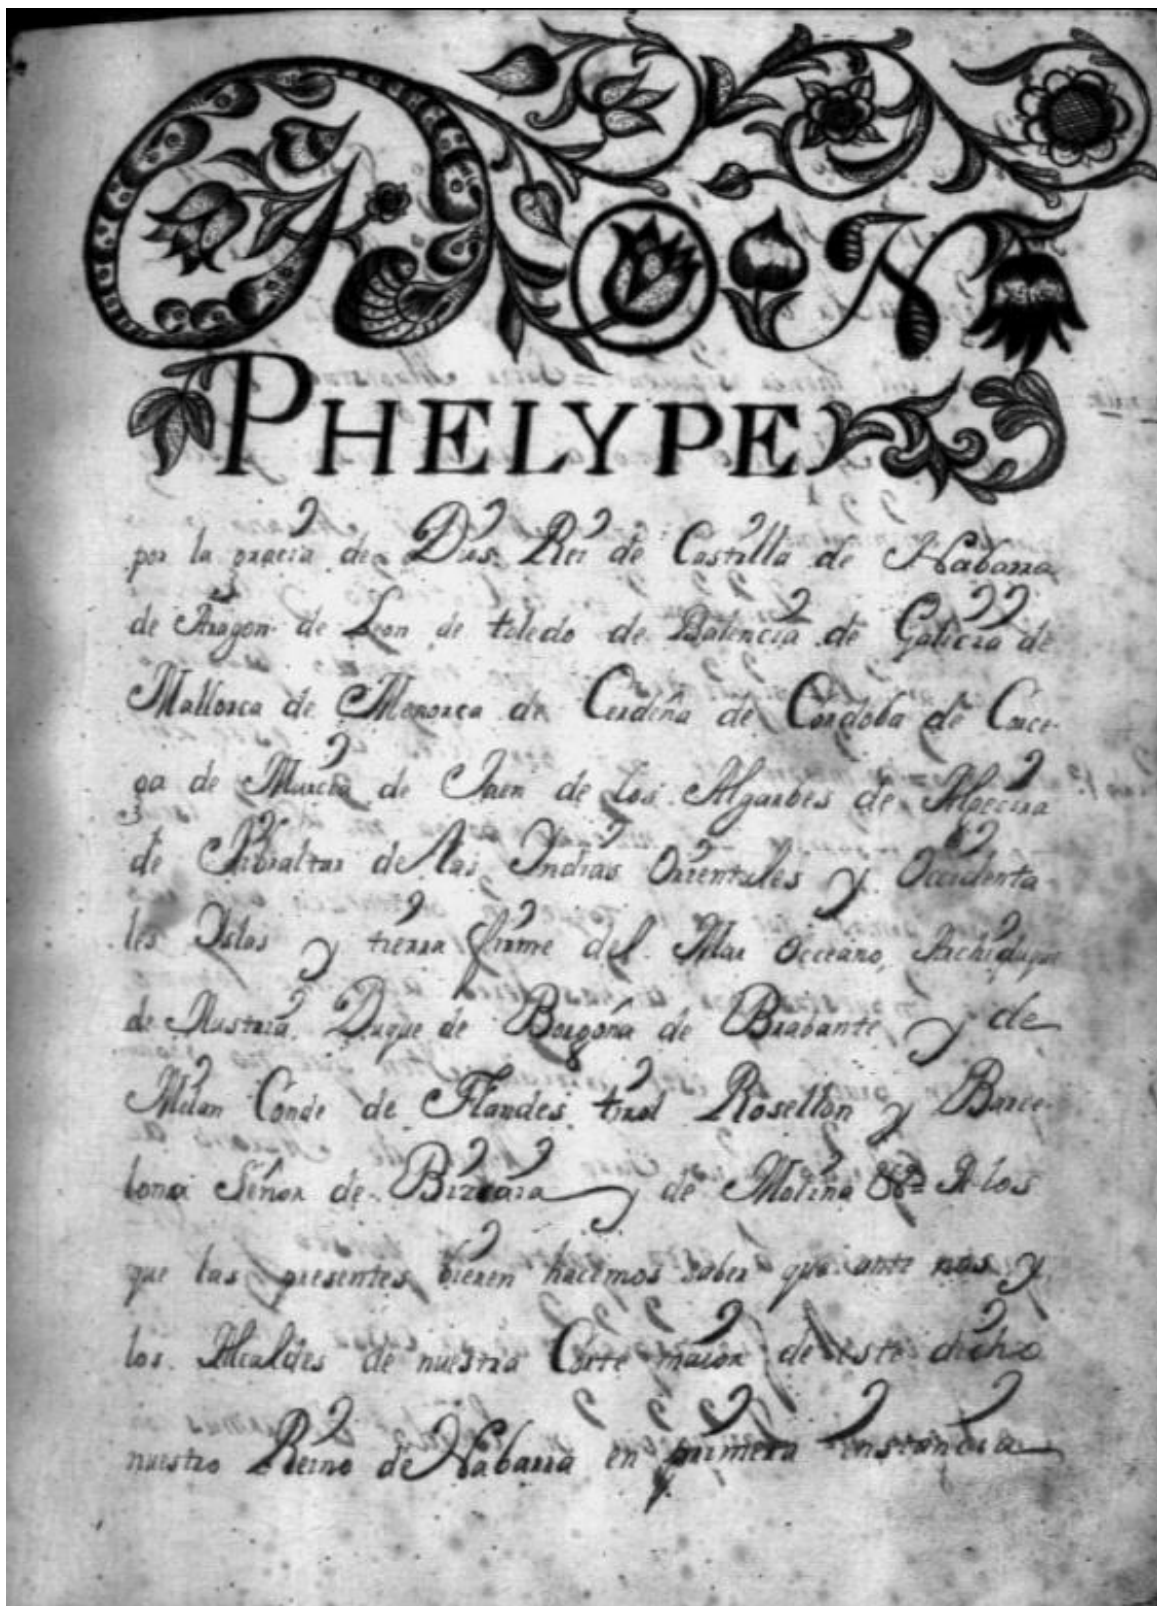 DON
PHELYPE
por la gracia de Dios Rei de Castilla de Nabarra
de Aragon de Leon de toledo de Balencia de Galicia de
Mallorca de Menorca de Cerdeña de Cordoba de Corce-
ga de Murcia de Jaen de los Algarbes de Algecira
de Gibraltar de las Indias Orientales y Occidenta
les Islas y tierra firme del Mar Occeano, Archiduque
de Austria Duque de Borgoña de Brabante y de
Milan Conde de Flandes tirol Rosellon y Barce-
lona Señor de Bizcaia y de Molina &a A los
que las presentes bieren hacemos saber que ante nos y
los Alcaldes de nuestra Corte maior de este dicho
nuestro Reino de Nabarra en primera instancia